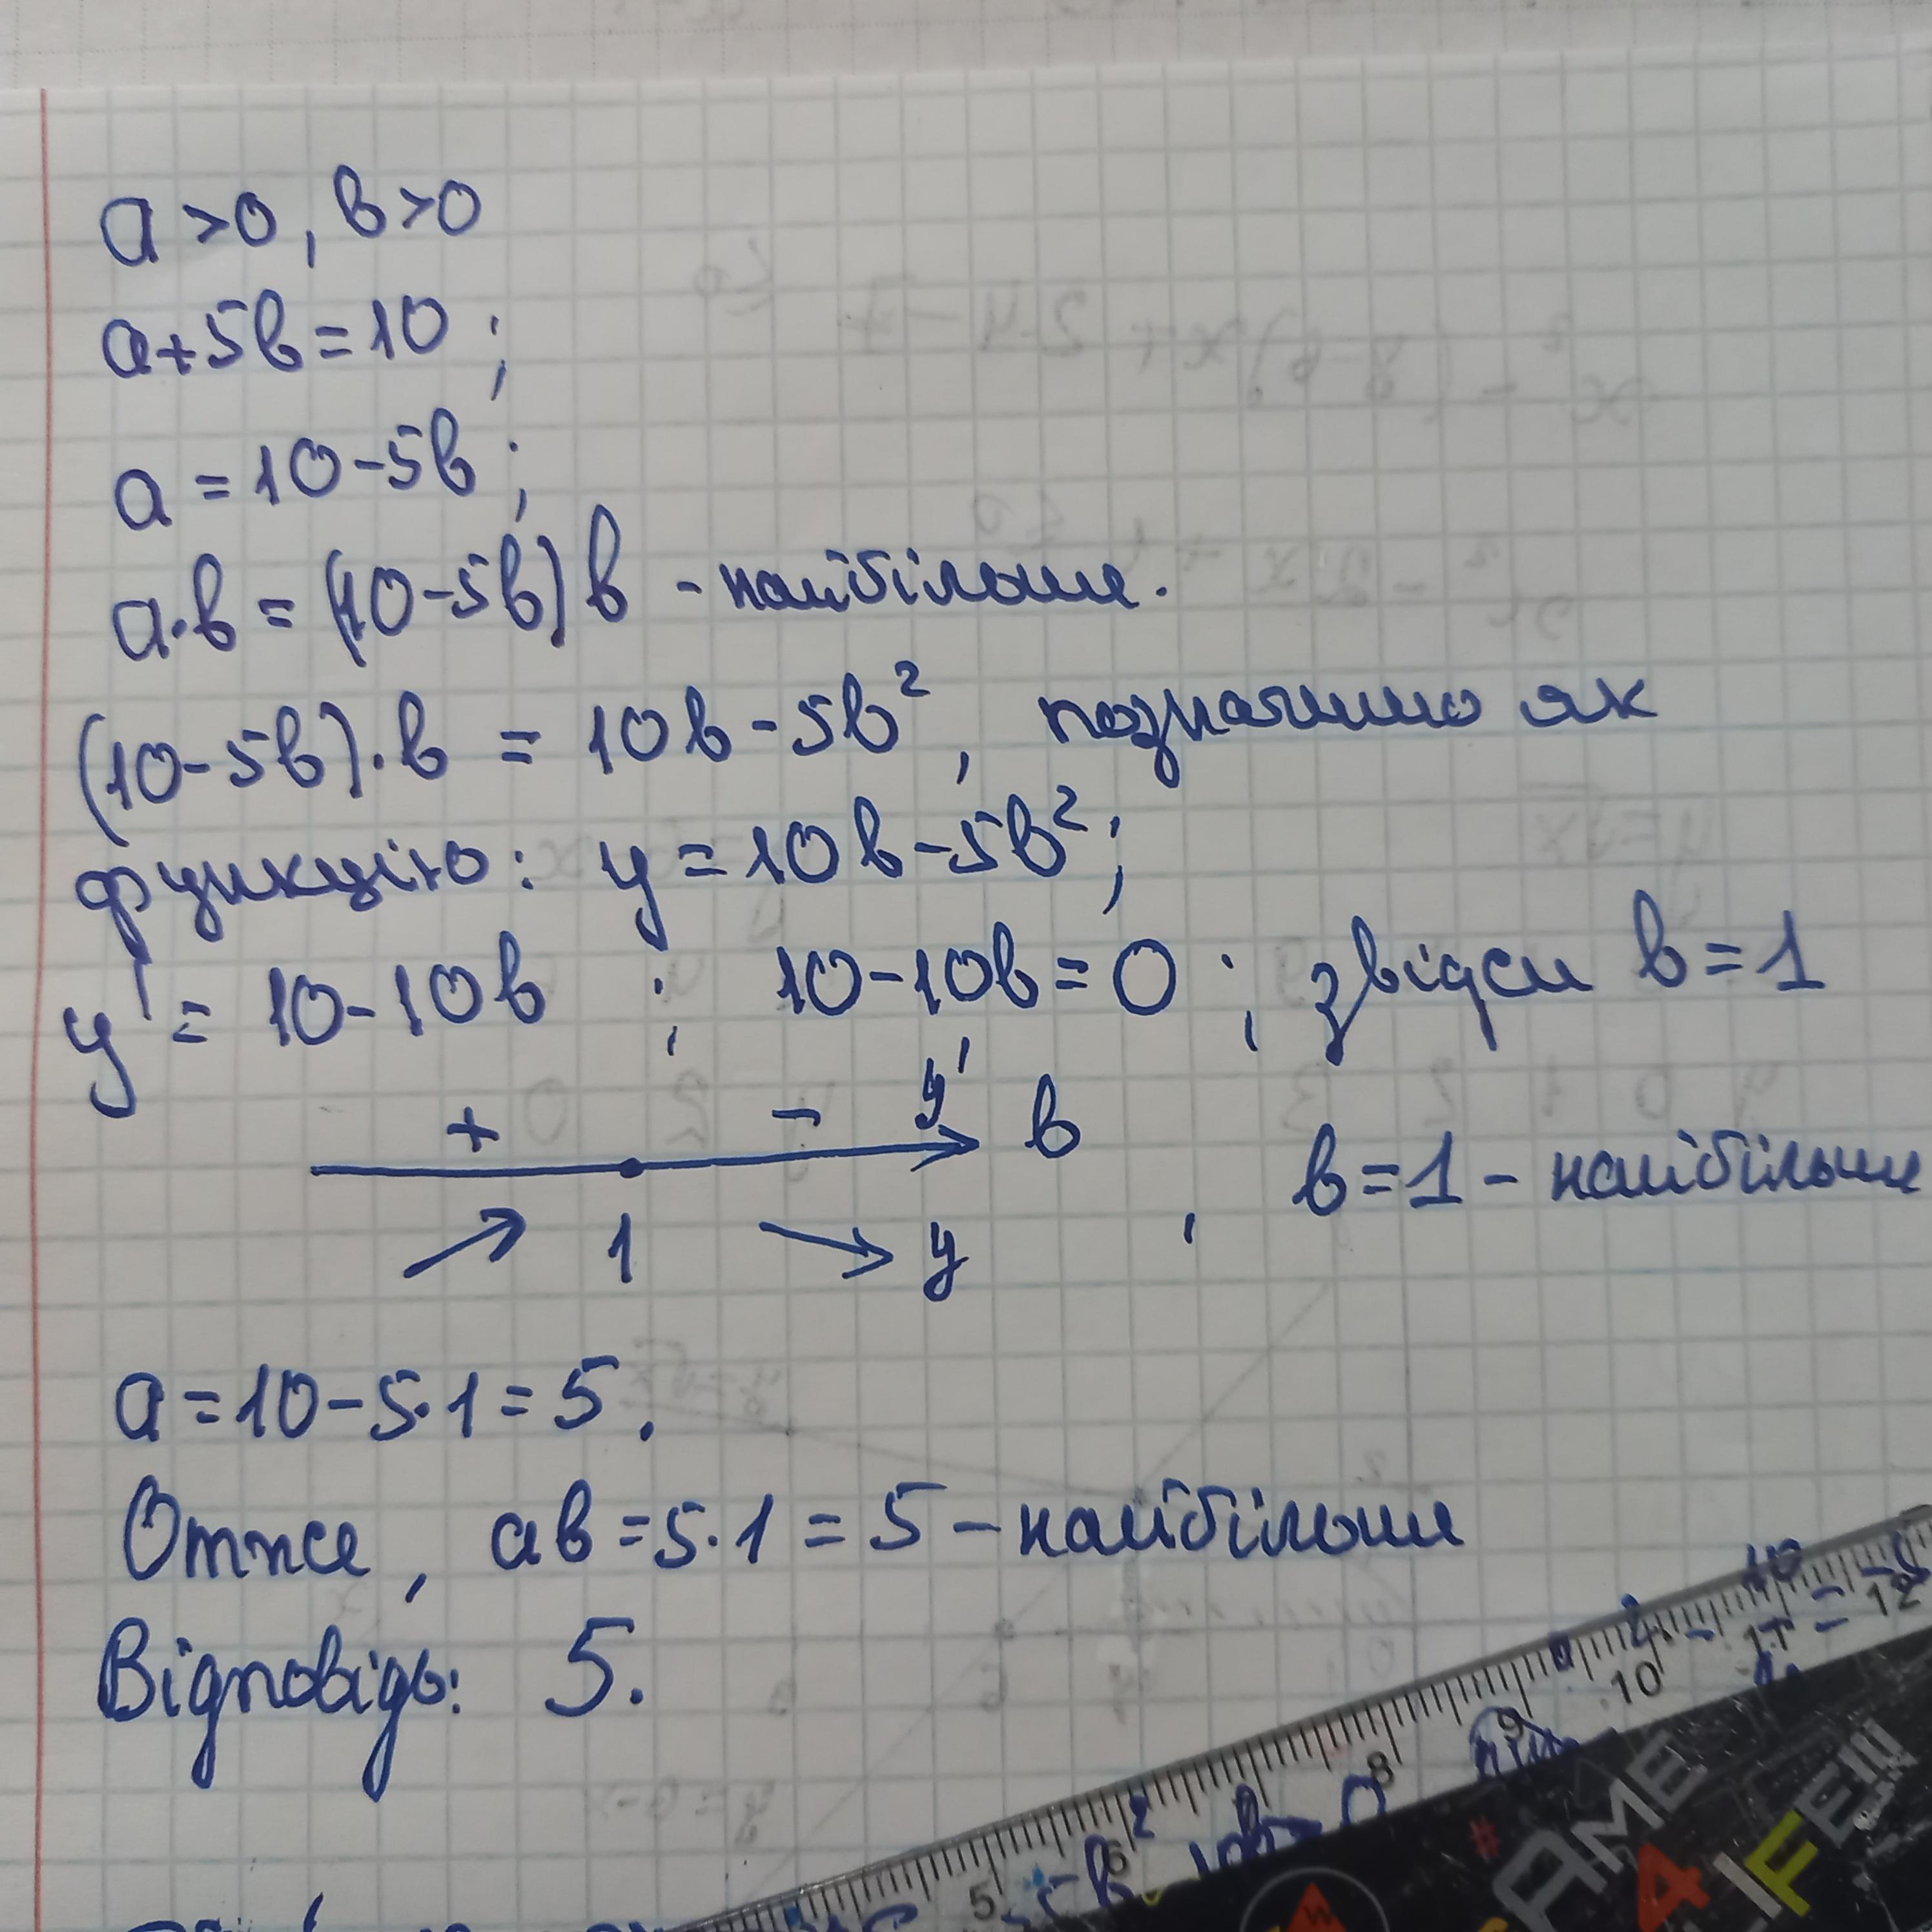 a >0, b>0
a+5b=10;
a = 10-5b;
a·b = (10-5b) b - найбільше.
(10-5b)·b = 10b-5b², позначимо як
функцію: y = 10b-5b²;
y' = 10-10b ; 10-10b=0 ; звідси b=1
+ - y' b
1 y , b=1 - найбільше
a = 10-5·1 = 5.
Отже, ab = 5·1 = 5 - найбільше
Відповідь: 5.
5 6 8 9 10 12
GAME
4 LIFE!!!